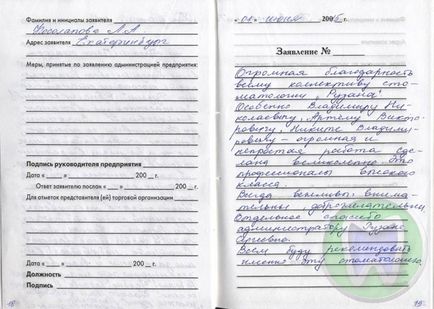 Фамилия и инициалы заявителя
Косолапова Л А
Адрес заявителя Екатеринбург
Меры, принятые по заявлению администрацией предприятия:
Подпись руководителя предприятия
Дата « » 200 г.
Ответ заявителю послан « » 200 г.
Для отметок представителя (ей) торговой организации
Дата « » 200 г.
Должность
Подпись
« 01 » июня 200 г.
Заявление №
Огромная благодарность
всему коллективу сто
матологии „Рузана".
Особенно Владимиру Ни
колаевичу, Артёму Викто
ровичу, Никите Владими
ровичу - огромная и
непростая работа сде
лана великолепно. Это
профессионалы высокого
класса.
Всегда вежливы, внима
тельны, доброжелательны
Отдельное спасибо
администратору Рузане
Юрьевне.
Всем буду рекомендовать
именно эту стоматологию.